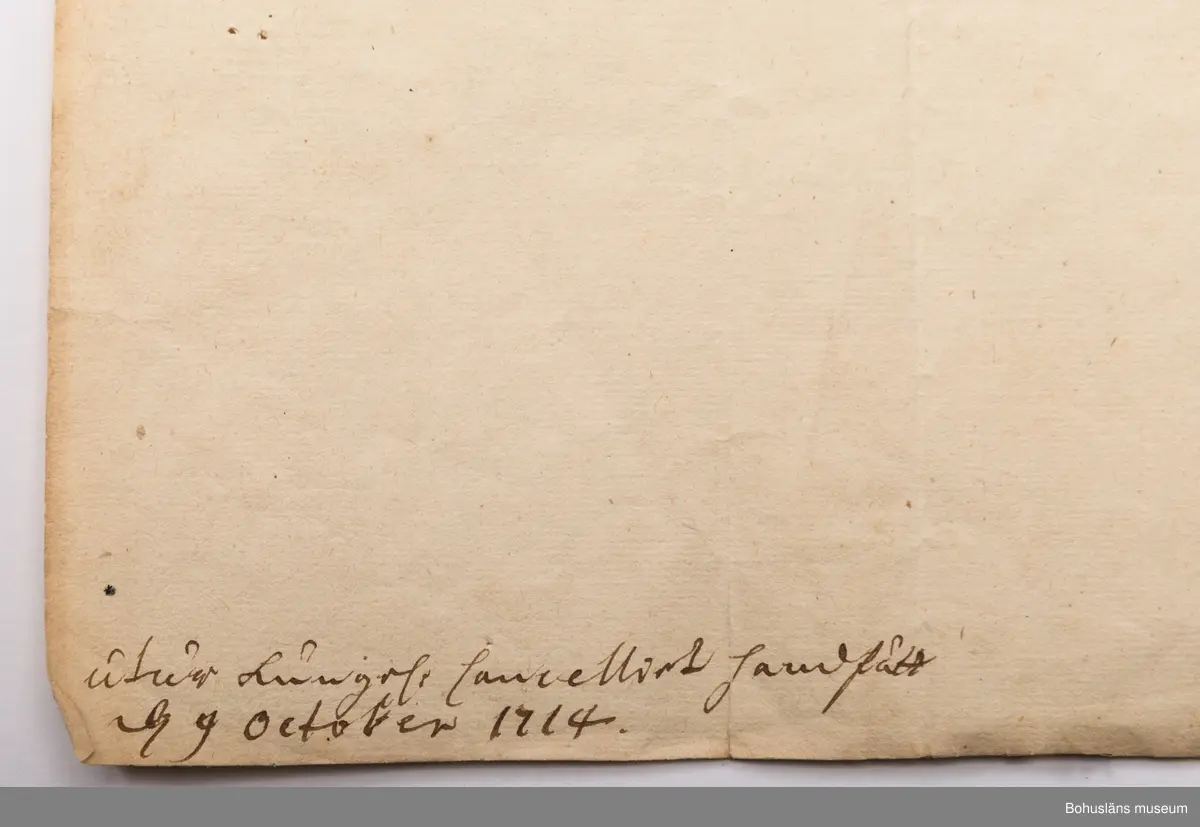 utur Kungsh. Cancelliet handfått
d 9 October 1714.
Bohusläns museum